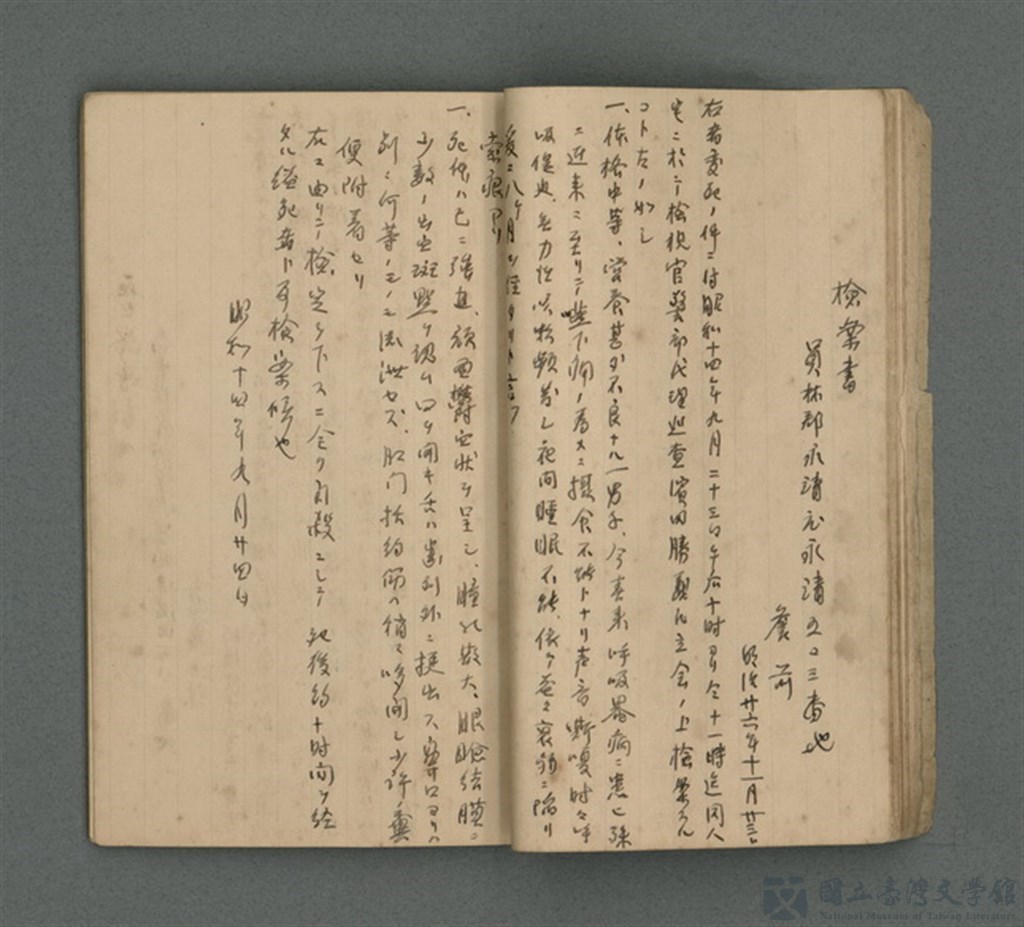 検案書
員林郡永靖庄永靖五〇三番地
詹前
明治廿六年十一月廿三日
右者変死ノ件ニ付昭和十四年九月二十三日午后十時ヨリ仝十一時迄同人
宅ニ於テ検視官警部代理巡査濱田勝 立会ノ上検案スル
コト左ノ如シ
一、体格中等、営養甚ダ不良ナル一男子、今春来呼吸器病ニ患ヒ殊
ニ近来ニ至リテ嚥下痛ノ為メニ摂食不能トナリ声音嘶嗄時々呼
吸促迫、無力性咳嗽頻発シ夜間睡眠不能、依テ益々衰弱ニ陥リ
爰ニ八ケ月ヲ経タリト言フ
索痕アリ
一、死体ハ已ニ強直、顔面欝血状ヲ呈シ、瞳孔散大、眼瞼結膜ニ
少数ノ出血斑点ヲ認ム口ヲ開キ舌ハ歯列外ニ挺出ス鼻口ヨリハ
別ニ何等ノモノモ流洩セズ、肛門括約筋ハ稍々哆開シ少許ノ糞
便附着セリ
右ニ由リテ検定ヲ下スニ全ク自殺ニシテ死後約十时間ヲ経
タル縊死者ト可検案候也
昭和十四年九月廿四日
國立臺灣文学館
National Museum of Taiwan Literature